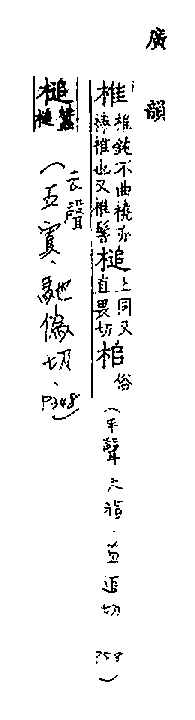 廣韻
椎 椎鈍不曲撓亦棒椎也又椎髻 槌 上同又直畏切 桘 俗 （平聲 六脂·直追切 P58）
槌 蠶槌 （去聲 五寘·馳偽切·P348）